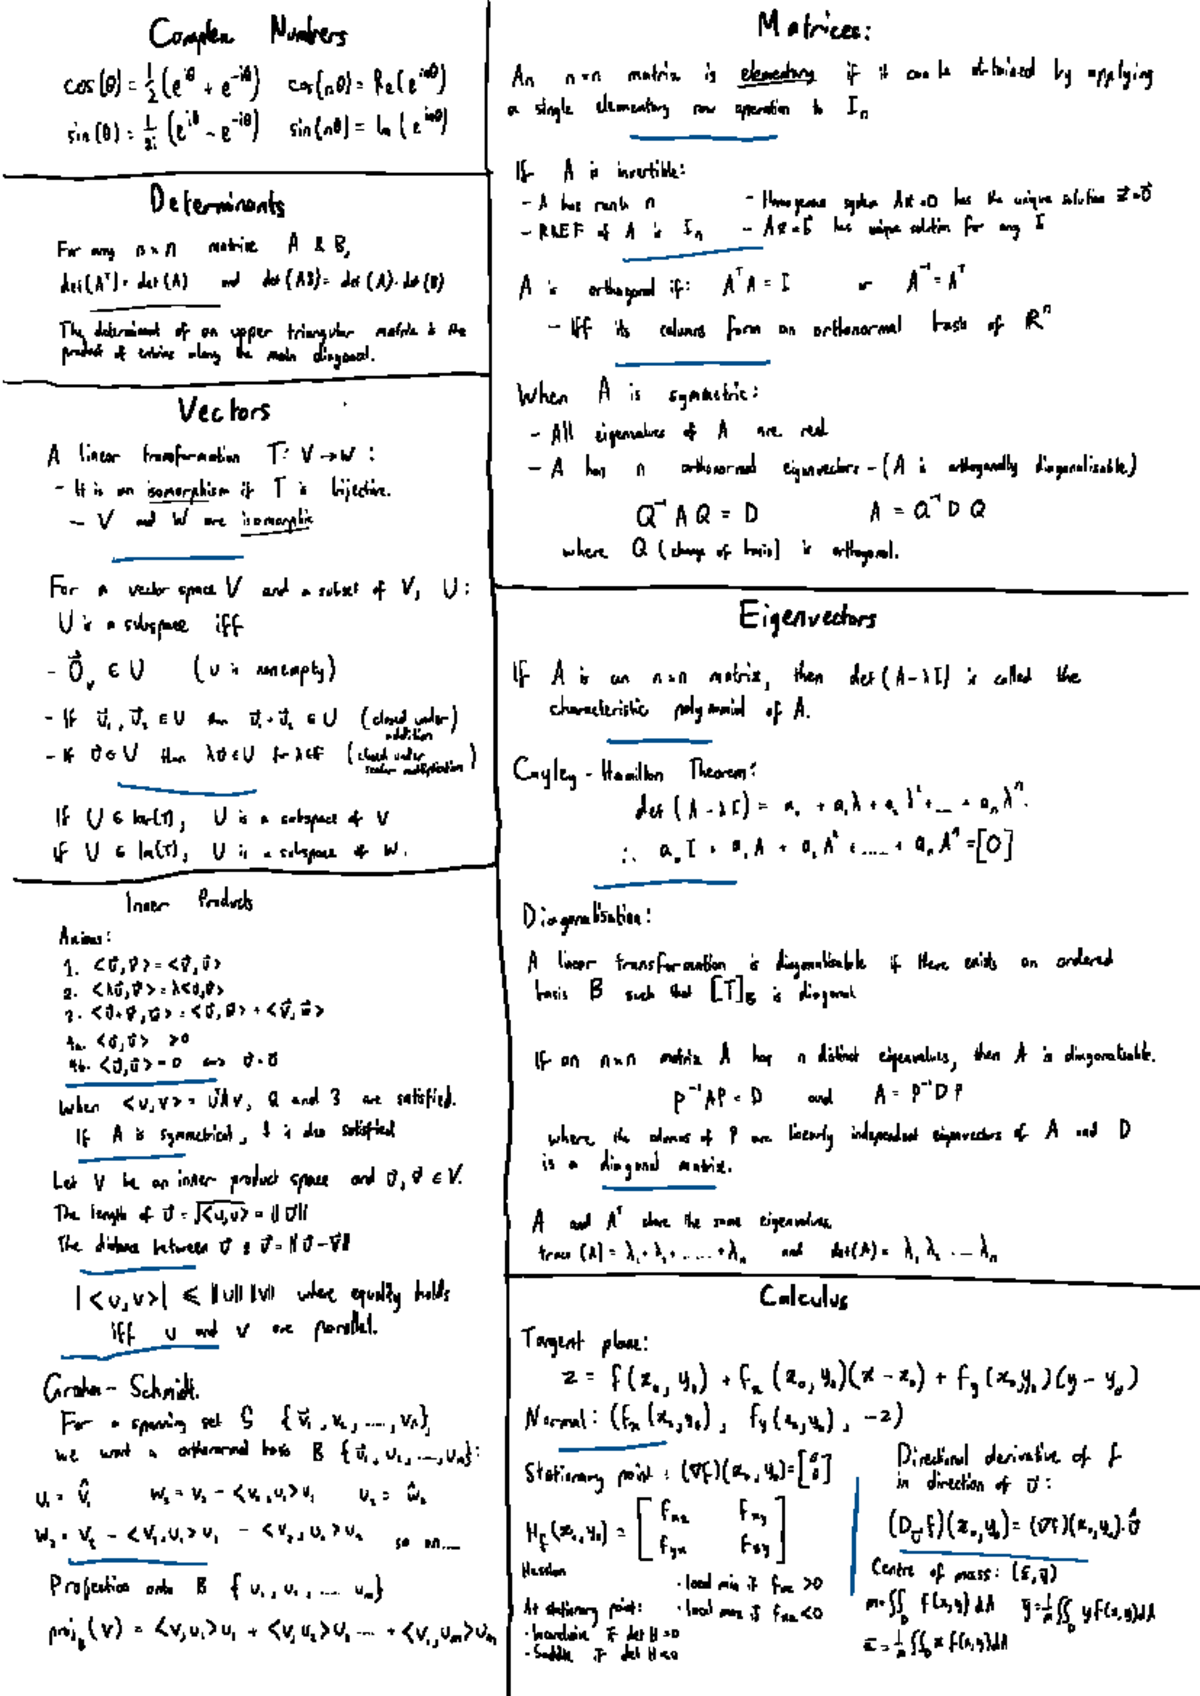 Complex Numbers
cos(θ) = 1/2 (e^{iθ} + e^{-iθ})    cos(nθ) = Re(e^{inθ})
sin(θ) = 1/2i (e^{iθ} - e^{-iθ})    sin(nθ) = Im(e^{inθ})
Determinants
For any n×n matrix A & B,
det(A^T) = det(A) and det(AB) = det(A)·det(B)
The determinant of an upper triangular matrix is the
product of entries along the main diagonal.
Vectors
A linear transformation T: V → W :
- It is an isomorphism if T is bijective.
- V and W are isomorphic
For a vector space V and a subset of V, U:
U is a subspace iff
- 0⃗_v ∈ U (U is nonempty)
- If u⃗₁, u⃗₂ ∈ U then u⃗₁ + u⃗₂ ∈ U (closed under addition)
- If u⃗ ∈ U then λu⃗ ∈ U for λ ∈ F (closed under scalar multiplication)
If U ∈ ker(T), U is a subspace of V
If U ∈ Im(T), U is a subspace of W.
Inner Products
Axioms:
1. <u⃗,v⃗> = <v⃗,u⃗>
2. <λu⃗,v⃗> = λ<u,v>
3. <u⃗+v⃗,w⃗> = <u⃗,w⃗> + <v⃗,w⃗>
4a. <u⃗,u⃗> ≥ 0
4b. <u⃗,u⃗> = 0 ⟺ u⃗ = 0⃗
When <u,v> = u^T A v, 2 and 3 are satisfied.
If A is symmetrical, 1 is also satisfied
Let V be an inner product space and u⃗, v⃗ ∈ V.
The length of u⃗ = √<u,u> = ||u⃗||
The distance between u⃗ & v⃗ = ||u⃗ - v⃗||
|<u,v>| ≤ ||u|| ||v|| where equality holds
iff u and v are parallel.
Grahm-Schmidt.
For a spanning set S {v⃗₁, v₂, ...., vₙ},
we want a orthonormal basis B {u⃗₁, u₂, ..., uₘ}:
u₁ = v̂₁    w₂ = v₂ - <v₂,u₁>u₁    u₂ = ŵ₂
w₃ = v₃ - <v₃,u₁>u₁ - <v₃,u₂>u₂ so on....
Projection onto B {u₁, u₂, .... uₘ}
proj_B(v) = <v,u₁>u₁ + <v,u₂>u₂ ... + <v,uₘ>uₘ
Matrices:
An n×n matrix is elementary if it can be obtained by applying
a single elementary row operation to Iₙ
If A is invertible:
- A has rank n    - Homogenous system Ax = 0 has the unique solution x⃗ = 0⃗
- RREF of A is Iₙ    - Ax = b⃗ has unique solution for any b⃗
A is orthogonal if: A^T A = I or A^{-1} = A^T
- Iff its columns form an orthonormal basis of ℝⁿ
When A is symmetric:
- All eigenvalues of A are real
- A has n orthonormal eigenvectors - (A is orthogonally diagonalisable)
Q^{-1} A Q = D    A = Q^{-1} D Q
where Q (change of basis) is orthogonal.
Eigenvectors
If A is an n×n matrix, then det(A-λI) is called the
characteristic polynomial of A.
Cayley-Hamilton Theorem:
det(A-λI) = a₀ + a₁λ + a₂λ² + ... + aₙλⁿ.
∴ a₀I + a₁A + a₂A² + ..... + aₙAⁿ = [0]
Diagonalisation:
A linear transformation is diagonalisable if there exists an ordered
basis B such that [T]_B is diagonal
If an n×n matrix A has n distinct eigenvalues, then A is diagonalisable.
P^{-1}AP = D and A = P^{-1}DP
where the columns of P are linearly independent eigenvectors of A and D
is a diagonal matrix.
A and A^T share the same eigenvalues
trace(A) = λ₁ + λ₂ + ..... + λₙ and det(A) = λ₁ λ₂ .... λₙ
Calculus
Tangent plane:
z = f(x₀,y₀) + fₓ(x₀,y₀)(x-x₀) + f_y(x₀,y₀)(y-y₀)
Normal: (fₓ(x₀,y₀), f_y(x₀,y₀), -z)
Stationary point: (∇f)(x₀,y₀) = [0 0]
H_f(x₀,y₀) = [fₓₓ fₓy fyx fxy]
Hessian
· local min if fₓₓ > 0
At stationary point: · local max if fₓₓ < 0
· Inconclusive if det H = 0
· Saddle if det H < 0
Directional derivative of f
in direction of u⃗:
(D_u⃗ f)(x₀,y₀) = (∇f)(x₀,y₀)·û
Centre of mass: (x̄,ȳ)
m = ∬_D f(x,y) dA    ȳ = 1/m ∬_D y f(x,y) dA
x̄ = 1/m ∬_D x f(x,y) dA